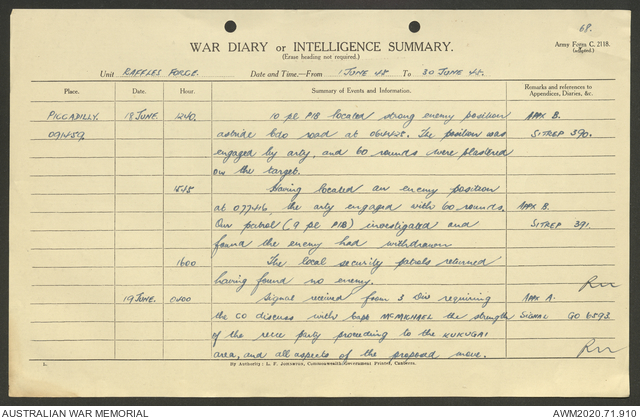 68.
WAR DIARY or INTELLIGENCE SUMMARY.
(Erase heading not required.)
Army Form C. 2118.
(adapted.)
Unit RAFFLES FORCE. Date and Time.—From 1 JUNE 45 To 30 JUNE 45.
Place. Date. Hour. Summary of Events and Information. Remarks and references to
Appendices, Diaries, &c.
PICCADILLY. 18 JUNE. 1240. 10 pl PIB located strong enemy position APPX B.
091452 astride bdo road at 061425. The position was SITREP 390.
engaged by arty, and 60 rounds were plastered
on the target.
1545 Having located an enemy position
at 077416, the arty engaged with 60 rounds. APPX B.
Our patrol (9 pl PIB) investigated and SITREP 391.
found the enemy had withdrawn
1600 The local security patrols returned
having found no enemy.
19 JUNE. Signal received from 3 Div requiring APPX A.
the CO discuss with Capt McMICHAEL the strength SIGNAL GO 6593.
of the recce party proceeding to the KUKUGAI
area, and all aspects of the proposed move.
By Authority: L. F. Johnston, Commonwealth Government Printer, Canberra.
AUSTRALIAN WAR MEMORIAL AWM2020.71.910